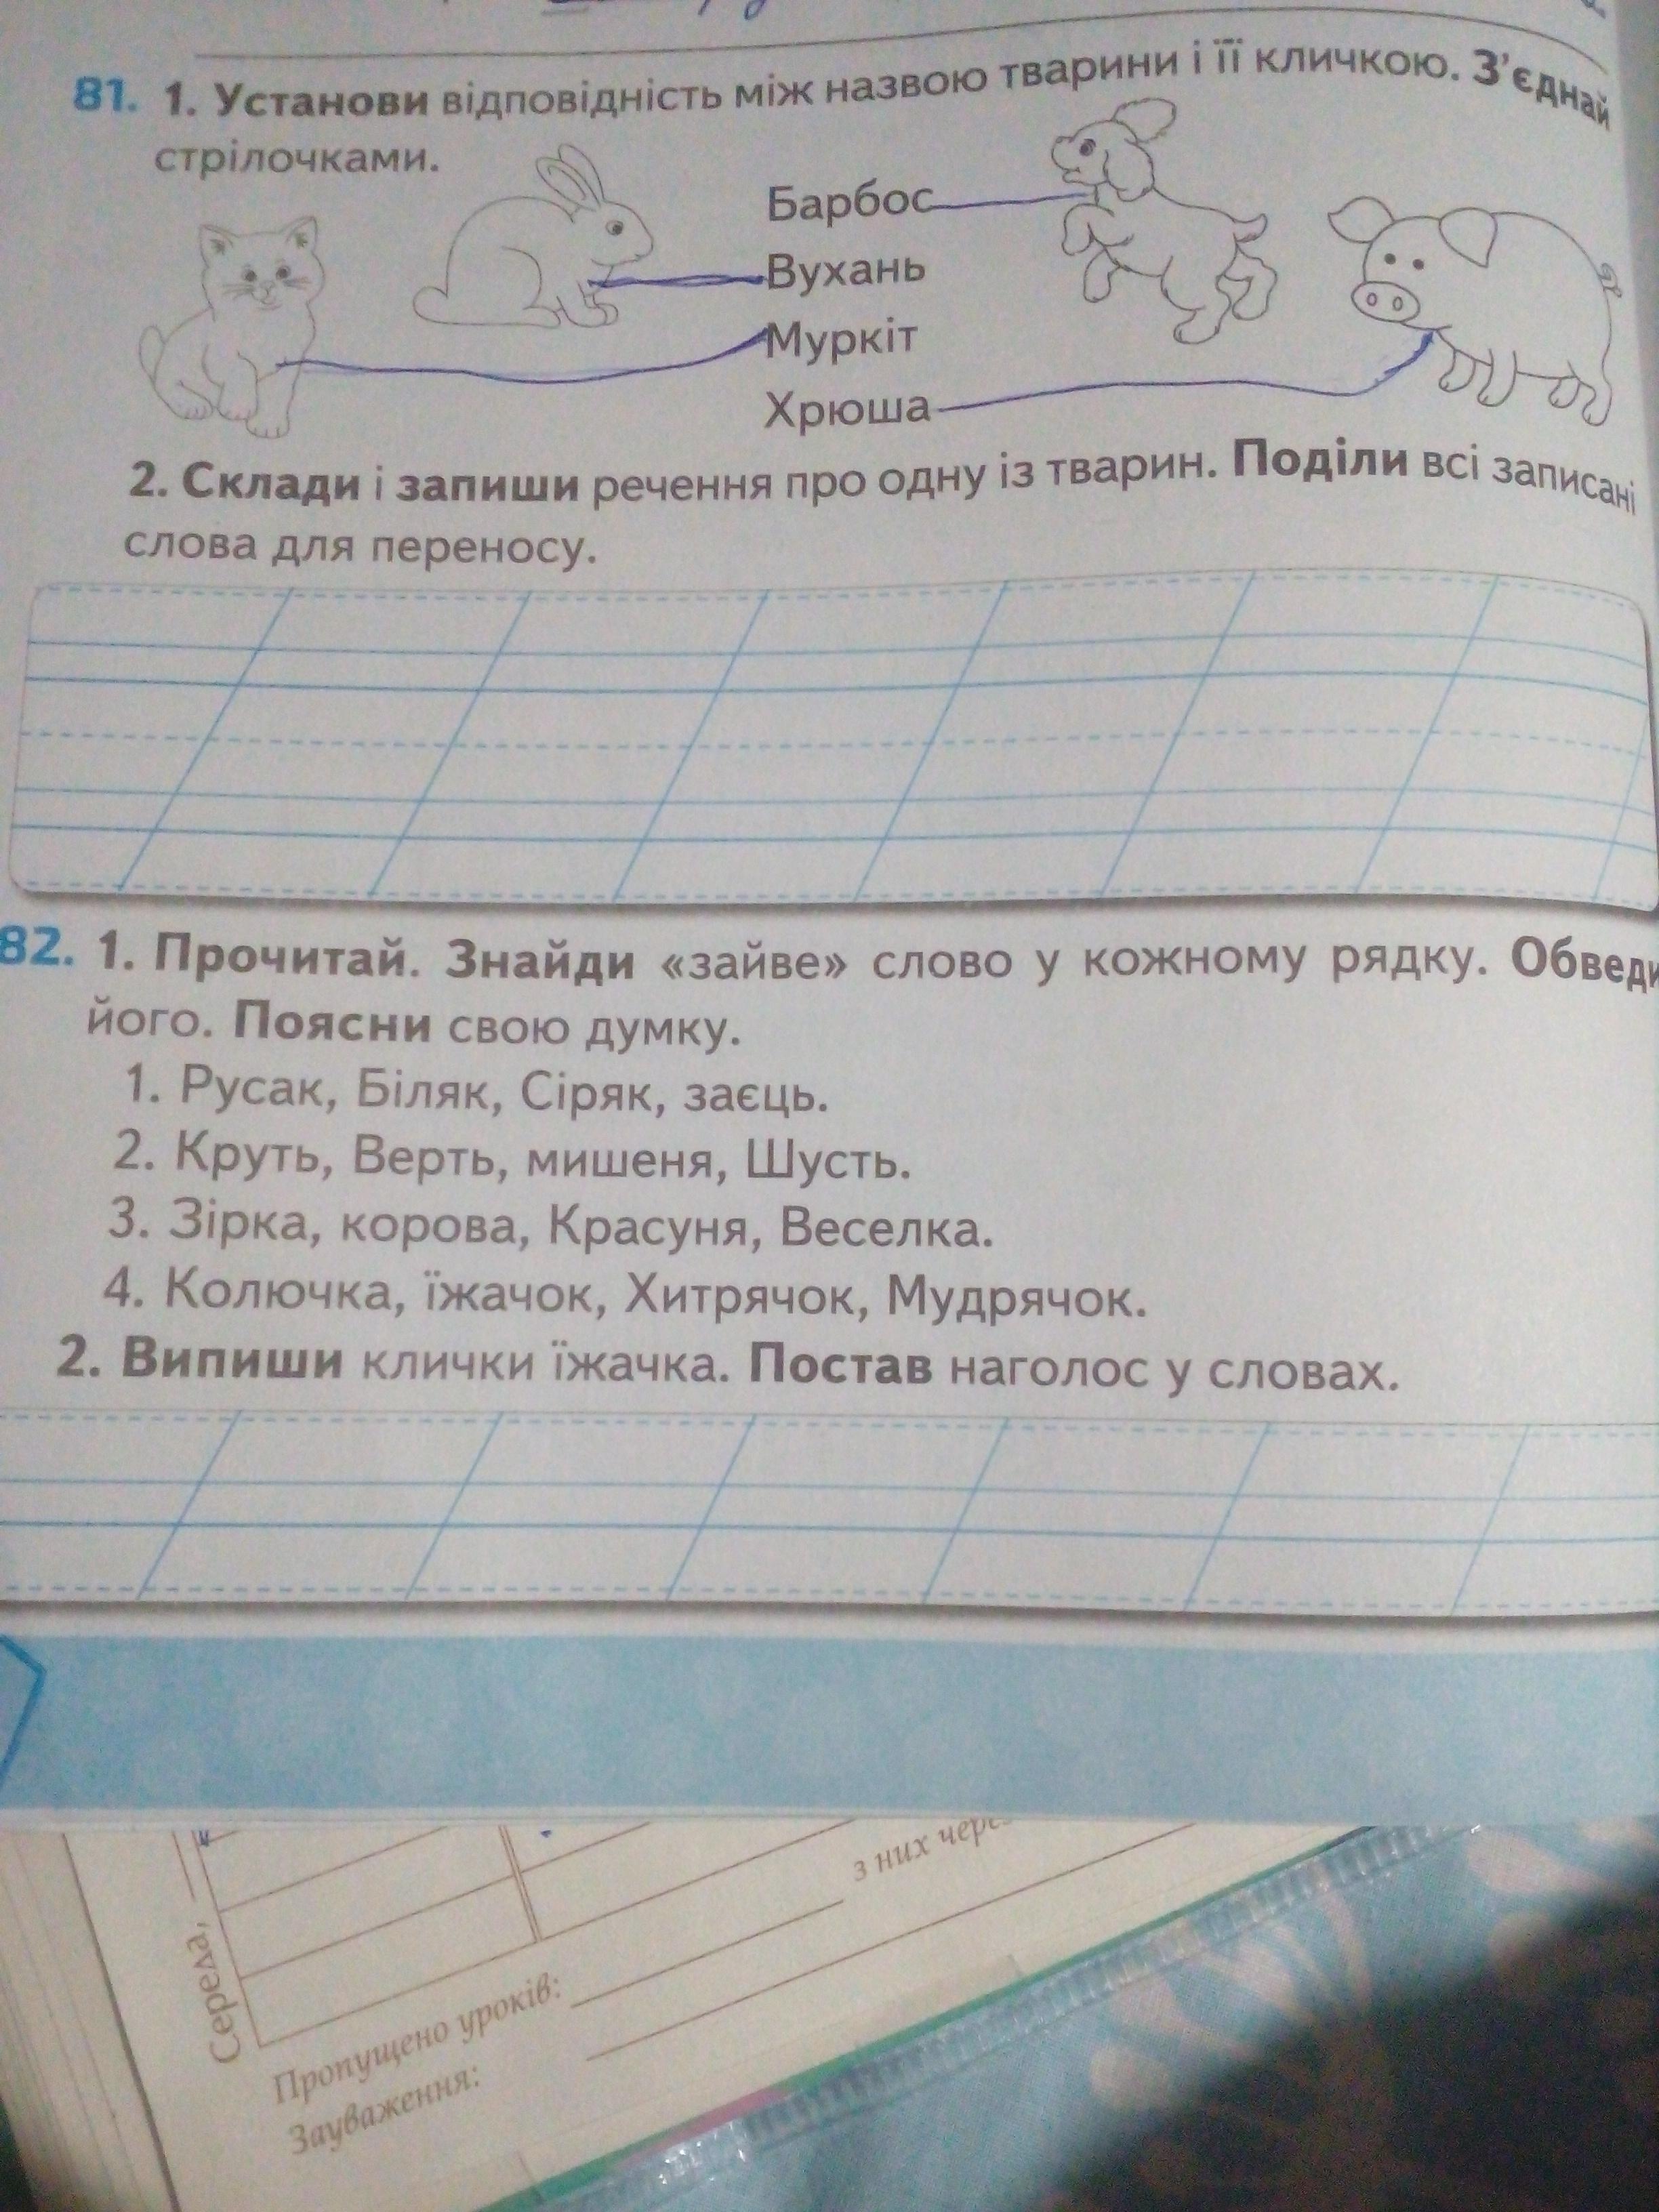 81. 1. Установи відповідність між назвою тварини і її кличкою. З'єднай
стрілочками.
Барбос
Вухань
Муркіт
Хрюша
2. Склади і запиши речення про одну із тварин. Поділи всі записані
слова для переносу.
82. 1. Прочитай. Знайди «зайве» слово у кожному рядку. Обведи
його. Поясни свою думку.
1. Русак, Біляк, Сіряк, заєць.
2. Круть, Верть, мишеня, Шусть.
3. Зірка, корова, Красуня, Веселка.
4. Колючка, їжачок, Хитрячок, Мудрячок.
2. Випиши клички їжачка. Постав наголос у словах.
з них чере
Середа,
Пропущено уроків:
Зауваження: